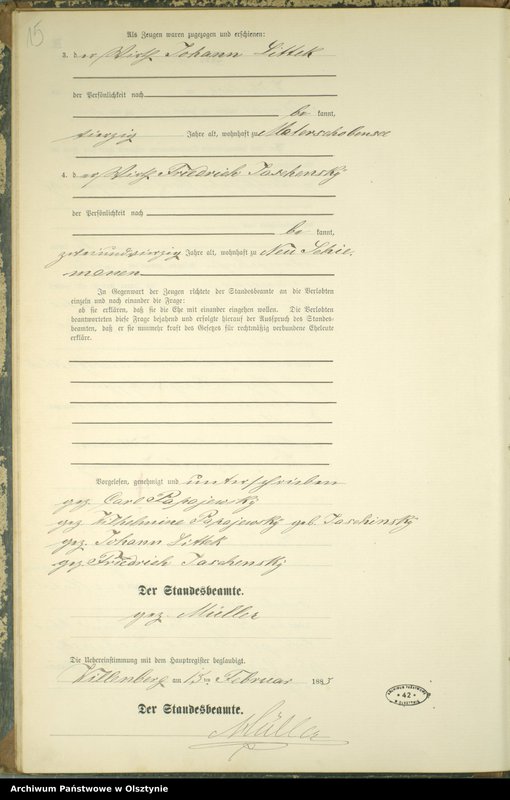 15
Als Zeugen waren zugezogen und erschienen:
3. der Wirth Johann Littek
der Persönlichkeit nach
be kannt,
vierzig Jahre alt, wohnhaft zu Materschobensee
4. der Wirth Friedrich Jaschensky
der Persönlichkeit nach
be kannt,
zweiundvierzig Jahre alt, wohnhaft zu Neu Schie-
manen
In Gegenwart der Zeugen richtete der Standesbeamte an die Verlobten
einzeln und nach einander die Frage:
ob sie erklären, daß sie die Ehe mit einander eingehen wollen. Die Verlobten
beantworteten diese Frage bejahend und erfolgte hierauf der Ausspruch des Standes-
beamten, daß er sie nunmehr kraft des Gesetzes für rechtmäßig verbundene Eheleute
erkläre.
Vorgelesen, genehmigt und unterschrieben
gez. Carl Papajewsky
gez. Wilhelmine Papajewsky geb. Jaschinsky
gez. Johann Littek
gez. Friedrich Jaschensky
Der Standesbeamte.
gez. Müller
Die Uebereinstimmung mit dem Hauptregister beglaubigt.
Willenberg am 15ten Februar 1883
Der Standesbeamte.
Müller
ARCHIWUM PAŃSTWOWE
* 42 *
W OLSZTYNIE
Archiwum Państwowe w Olsztynie